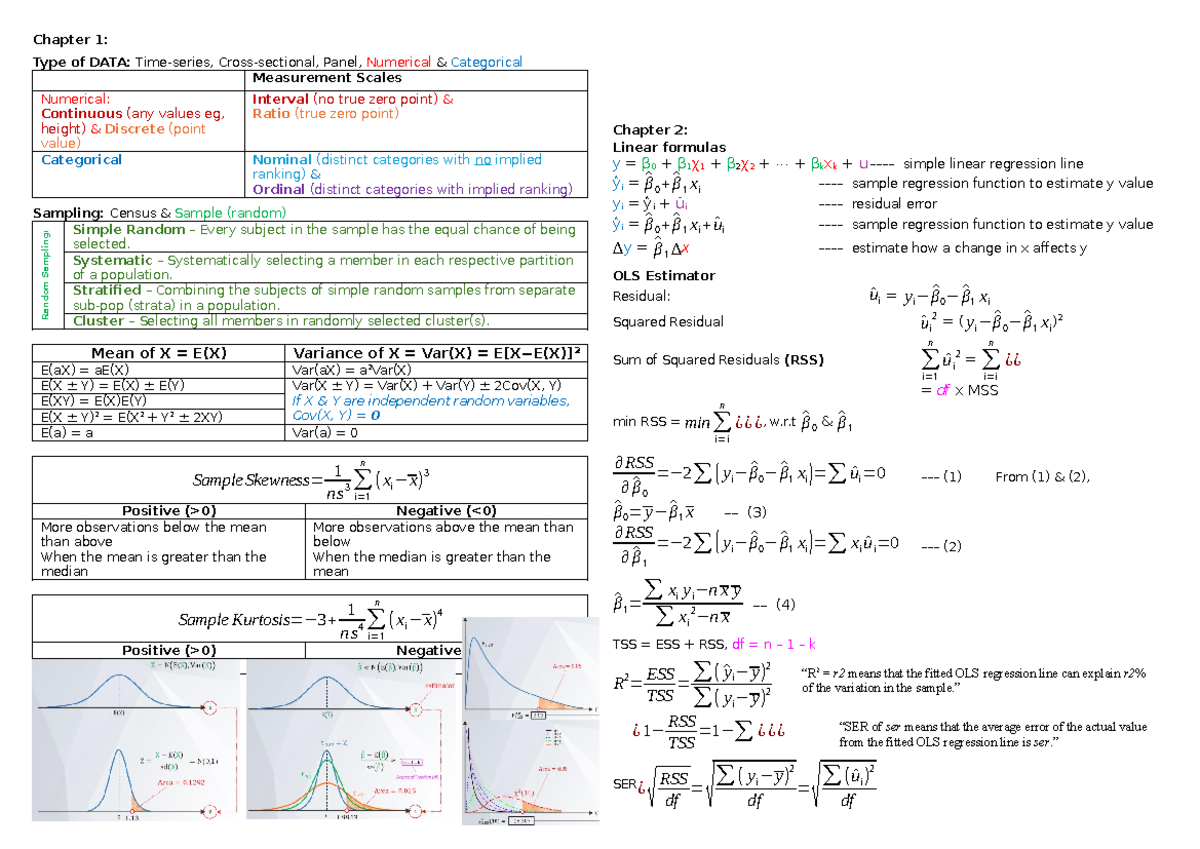 Chapter 1:
Type of DATA: Time-series, Cross-sectional, Panel, Numerical & Categorical
Measurement Scales
Numerical:
Continuous (any values eg,
height) & Discrete (point
value)
Interval (no true zero point) &
Ratio (true zero point)
Categorical
Nominal (distinct categories with no implied
ranking) &
Ordinal (distinct categories with implied ranking)
Sampling: Census & Sample (random)
Random Sampling:
Simple Random – Every subject in the sample has the equal chance of being
selected.
Systematic – Systematically selecting a member in each respective partition
of a population.
Stratified – Combining the subjects of simple random samples from separate
sub-pop (strata) in a population.
Cluster – Selecting all members in randomly selected cluster(s).
Mean of X = E(X) Variance of X = Var(X) = E[X−E(X)]²
E(aX) = aE(X) Var(aX) = a²Var(X)
E(X ± Y) = E(X) ± E(Y) Var(X ± Y) = Var(X) + Var(Y) ± 2Cov(X, Y)
E(XY) = E(X)E(Y) If X & Y are independent random variables,
E(X ± Y)² = E(X² + Y² ± 2XY) Cov(X, Y) = 0
E(a) = a Var(a) = 0
Sample Skewness = 1/ns³ ∑ i=1 n (xᵢ − x̅)³
Positive (>0) Negative (<0)
More observations below the mean
than above
When the mean is greater than the
median
More observations above the mean than
below
When the median is greater than the
mean
Sample Kurtosis = −3 + 1/ns⁴ ∑ i=1 n (xᵢ − x̅)⁴
Positive (>0) Negative
Area = 0.1292
Area = 0.025
Area = 0.05
Area = 0.05
Chapter 2:
Linear formulas
y = β₀ + β₁χ₁ + β₂χ₂ + ⋯ + βₖxₖ + u ---- simple linear regression line
ŷᵢ = β̂₀+β̂₁xᵢ ---- sample regression function to estimate y value
yᵢ = ŷᵢ + ûᵢ ---- residual error
ŷᵢ = β̂₀+β̂₁xᵢ+ûᵢ ---- sample regression function to estimate y value
Δy = β̂₁Δx ---- estimate how a change in x affects y
OLS Estimator
Residual: ûᵢ = yᵢ−β̂₀−β̂₁xᵢ
Squared Residual ûᵢ² = (yᵢ−β̂₀−β̂₁xᵢ)²
Sum of Squared Residuals (RSS) ∑ i=1 n ûᵢ² = ∑ i=i n ¿¿
= df × MSS
min RSS = min ∑ i=i n ¿¿¿, w.r.t β̂₀ & β̂₁
∂RSS/∂β̂₀ = −2∑(yᵢ−β̂₀−β̂₁xᵢ) = ∑ûᵢ = 0 --- (1) From (1) & (2),
β̂₀ = y̅−β̂₁x̅ -- (3)
∂RSS/∂β̂₁ = −2∑(yᵢ−β̂₀−β̂₁xᵢ) = ∑xᵢûᵢ = 0 --- (2)
β̂₁ = (∑xᵢyᵢ−nx̅y̅)/(∑xᵢ²−nx̅) -- (4)
TSS = ESS + RSS, df = n – 1 – k
R² = ESS/TSS = ∑(ŷᵢ−y̅)²/∑(yᵢ−y̅)² “R² = r2 means that the fitted OLS regression line can explain r2%
of the variation in the sample.”
¿1−RSS/TSS = 1−∑¿¿¿ “SER of ser means that the average error of the actual value
from the fitted OLS regression line is ser.”
SER¿√(RSS/df) = √(∑(yᵢ−y̅)²/df) = √(∑(ûᵢ)²/df)